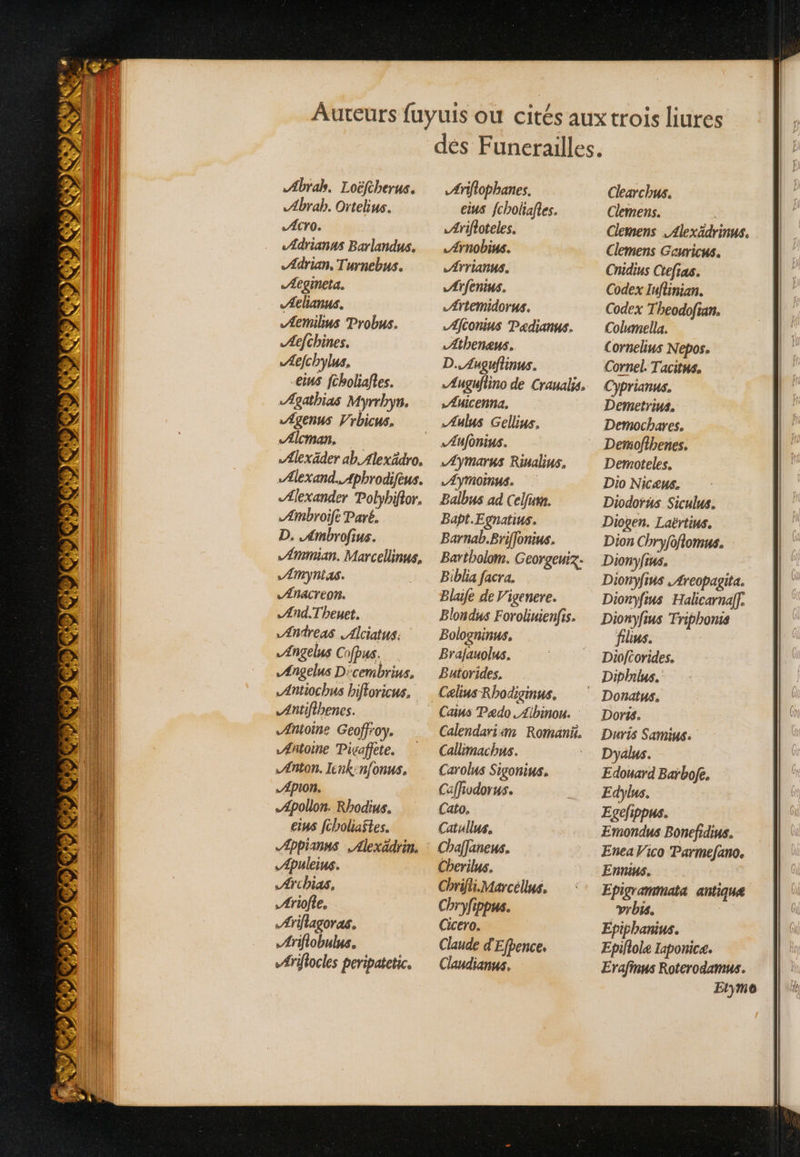 Auteurs ſuyuis ou cités aux trois liures
des Funerailles.
Abrah. Loëſcherus.
Abrah. Ortelius.
Acro.
Adrianus Barlandus.
Adrian. Turnebus.
Aegineta.
Aelianus.
Aemilius Probus.
Aeſchines.
Aeſchylus.
eius ſcholiaſtes.
Agathias Myrrhyn.
Agenus Vrbicus.
Alcman.
Alexāder ab Alexādro.
Alexand. Aphrodiſeus.
Alexander Polyhiſtor.
Ambroiſe Paré.
D. Ambroſius.
Ammian. Marcellinus,
Amyntas.
Anacreon.
And. Theuet.
Andreas Alciatus.
Angelus Coſpus.
Angelus Decembrius.
Antiochus hiſtoricus.
Antiſthenes.
Antoine Geoffroy.
Antoine Pigaffete.
Anton. Ienkenſonus.
Apion.
Apollon. Rhodius.
eius ſcholiaſtes.
Appianus Alexādrin.
Apuleius.
Archias.
Arioſte.
Ariſtagoras.
Ariſtobulus.
Ariſtocles peripatetic.
Ariſtophanes.
eius ſcholiaſtes.
Ariſtoteles.
Arnobius.
Arrianus.
Arſenius.
Artemidorus.
Aſconius Pædianus.
Athenæus.
D. Auguſtinus.
Auguſtino de Craualis.
Auicenna.
Aulus Gellius.
Auſonius.
Aymarus Riualius.
Aymoinus.
Balbus ad Celſum.
Bapt. Egnatius.
Barnab. Briſſonius.
Bartholom. Georgeuiz-
Biblia ſacra.
Blaiſe de Vigenere.
Blondus Foroliuienſis.
Bologninus.
Braſauolus.
Butorides.
Cælius Rhodiginus.
Caius Pædo Albinou.
Calendarium Romanū.
Callimachus.
Carolus Sigonius.
Caſſiodorus.
Cato.
Catullus.
Chaſſaneus.
Cherilus.
Chriſti. Marcellus.
Chryſippus.
Cicero.
Claude d'Eſpence.
Claudianus.
Clearchus.
Clemens.
Clemens Alexādrinus.
Clemens Gauricus.
Cnidius Cteſias.
Codex Iuſtinian.
Codex Theodoſian.
Columella.
Cornelius Nepos.
Cornel. Tacitus.
Cyprianus.
Demetrius.
Demochares.
Demoſthenes.
Demoteles.
Dio Nicæus.
Diodorus Siculus.
Diogen. Laërtius.
Dion Chryſoſtomus.
Dionyſius.
Dionyſius Areopagita.
Dionyſius Halicarnaſſ.
Dionyſius Triphonis
filius.
Dioſcorides.
Diphilus.
Donatus.
Doris.
Duris Samius.
Dyalus.
Edouard Barboſe.
Edylus.
Egeſippus.
Emondus Bonefidius.
Enea Vico Parmeſano.
Ennius.
Epigrammata antiquæ
vrbis.
Epiphanius.
Epiſtolæ Iaponicæ.
Eraſmus Roterodamus.
Etymo